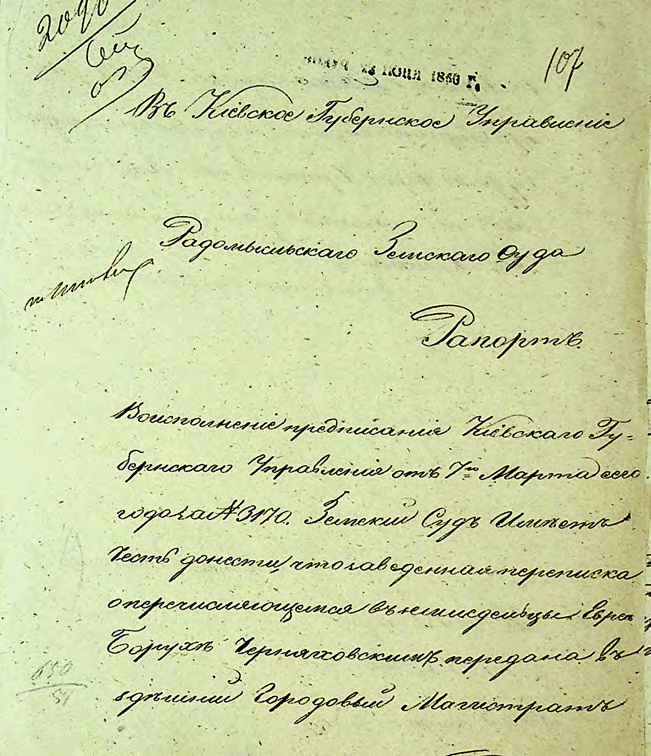 2090
107
получ. 22 июня 1860 Г.
Въ Кіевское Губернское Управленіе
Радомысльскаго Земскаго Суда
Рапортъ.
Воисполненіе предписанія Кіевскаго Гу-
бернскаго Управленія отъ 7го Марта сего
года за № 3170. Земскій Судъ Имѣетъ
Честь донести, что заведенная переписка
о перечисляющемся въ земледѣльцы Евреѣ
Борухѣ Черняховскимъ передана въ
здѣшній Городовый Магистратъ
650
51